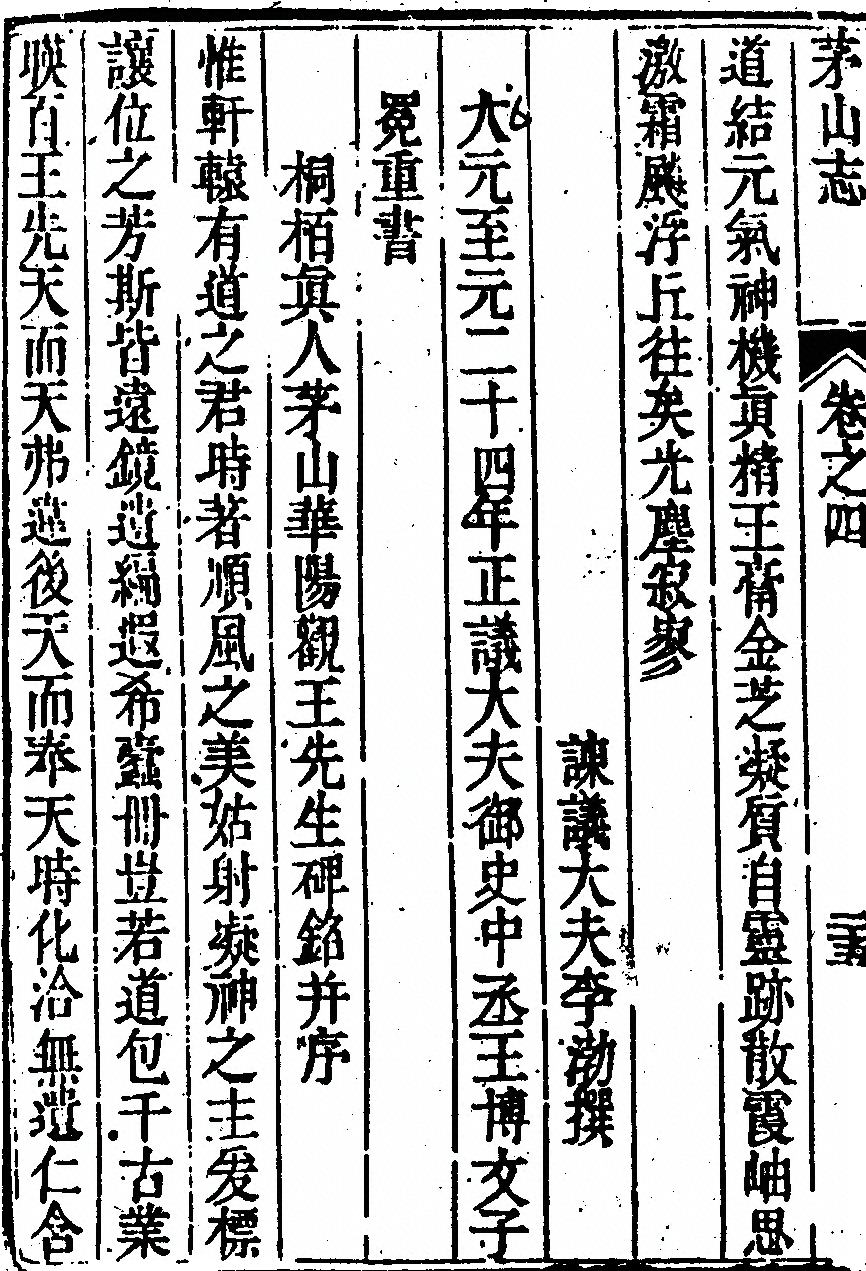 茅山志 卷之四 三五
道結元氣神機眞精王膏金芝凝質自靈跡散霞岫思
激霜飈浮丘往矣光塵寂寥
諫議大夫李渤撰
大元至元二十四年正議大夫御史中丞王博文子
冕重書
桐栢眞人茅山華陽觀王先生碑銘并序
惟軒轅有道之君時著順風之美姑射凝神之主爰標
讓位之芳斯皆遠鏡遺編遐希蠹冊豈若道包千古業
暎百王先天而天弗違後天而奉天時化洽無遺仁含